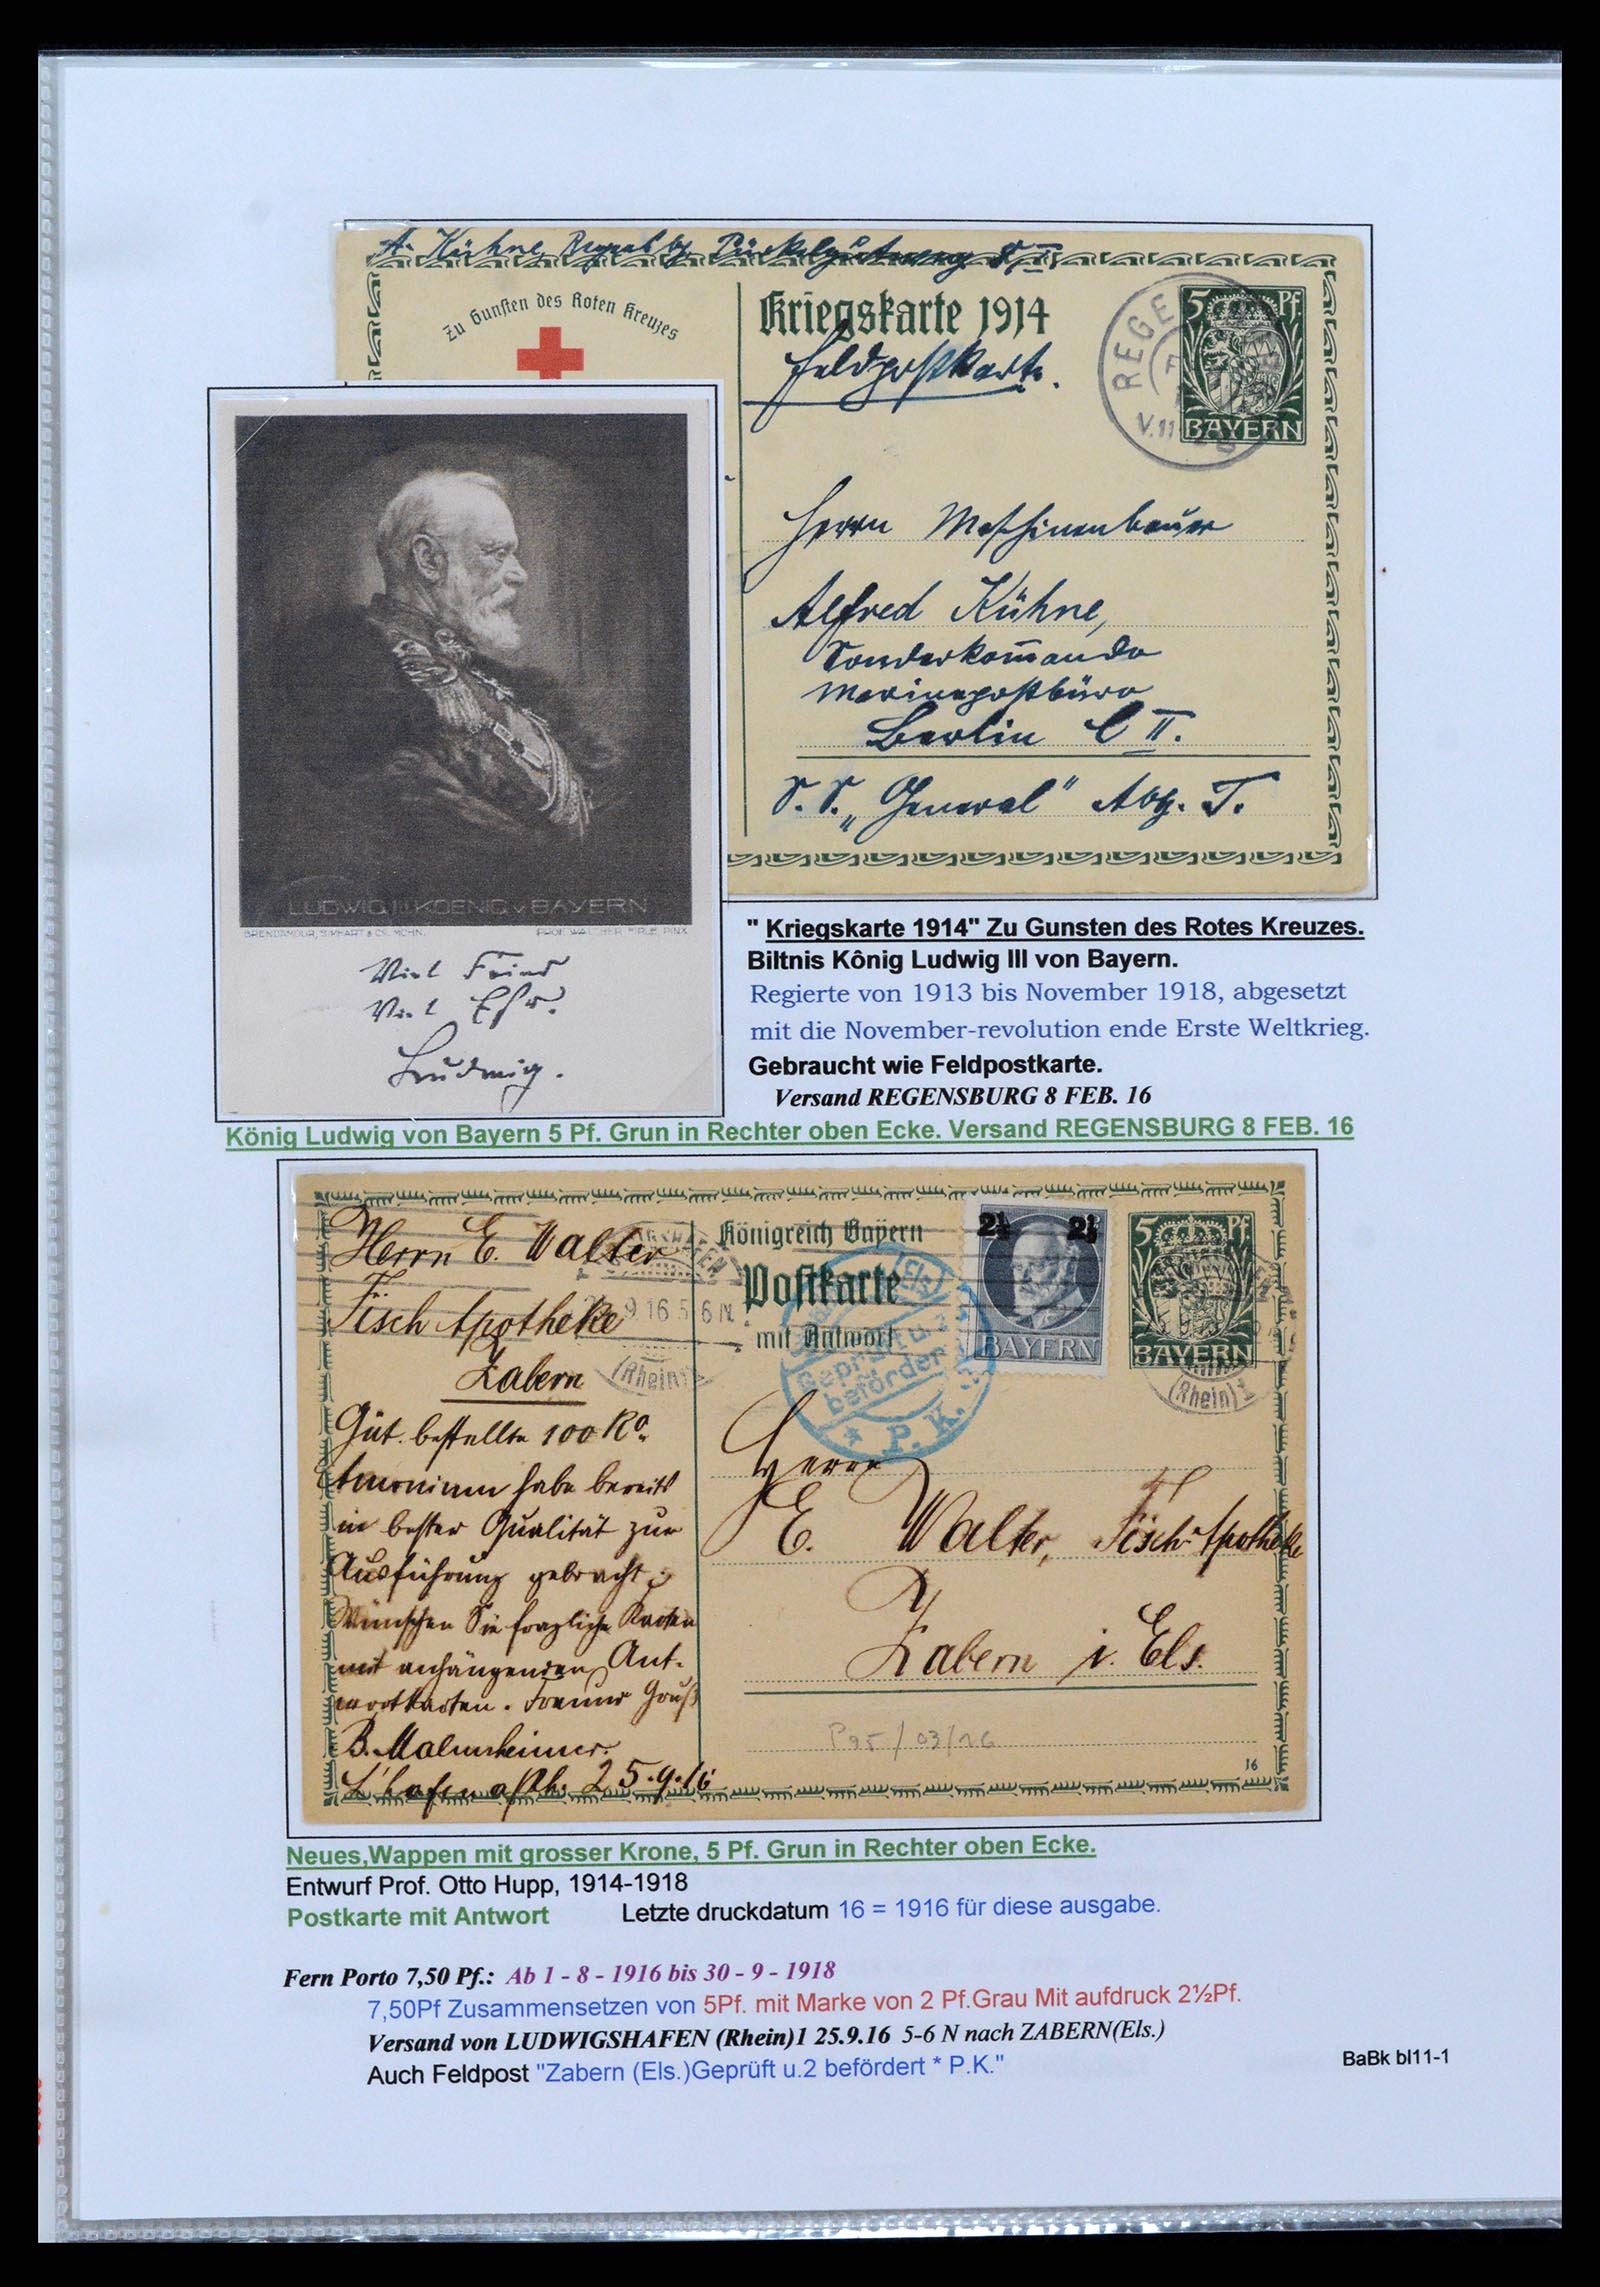 A. Kühne, Regensbg.
Zu Gunsten des Roten Kreuzes
Kriegskarte 1914
Feldpostkarte.
REGE
V.11
5 Pf
BAYERN
Herrn Maschinenbauer
Alfred Kühne,
Sonderkommando
Marinepostbüro
Berlin C II.
S. S. „General" Abg. T.
LUDWIG III KOENIG v BAYERN
BRENDAMOUR, SIMHART & CO. MCHN.
PROF. WALTHER FIRLE PINX
Viel Feind
Viel Ehr.
Ludwig.
" Kriegskarte 1914" Zu Gunsten des Rotes Kreuzes.
Biltnis Kônig Ludwig III von Bayern.
Regierte von 1913 bis November 1918, abgesetzt
mit die November-revolution ende Erste Weltkrieg.
Gebraucht wie Feldpostkarte.
Versand REGENSBURG 8 FEB. 16
König Ludwig von Bayern 5 Pf. Grun in Rechter oben Ecke. Versand REGENSBURG 8 FEB. 16
Herrn E. Walter
Fisch Apotheke
Zabern
Güt. bestellte 100 Ko.
Amonium habe bereits
in bester Qualität zur
Ausführung gebracht;
Wünschen Sie fragliche Karten
mit anhängenden Ant-
wortkarten. Freundl Gruß
B. Malmsheimer.
L'hafen a/Rh. 25.9.16
Königreich Bayern
Postkarte
mit Antwort
9.16 5-6 N.
(Rhein)
2½ 2½
BAYERN
5 Pf
BAYERN
(Rhein) 1
(Els.)
Geprüft u.
befördert
* P. K.
Herrn
E. Walter, Fisch-Apotheke
Zabern i. Els.
P95/03/16
16
Neues,Wappen mit grosser Krone, 5 Pf. Grun in Rechter oben Ecke.
Entwurf Prof. Otto Hupp, 1914-1918
Postkarte mit Antwort Letzte druckdatum 16 = 1916 für diese ausgabe.
Fern Porto 7,50 Pf.: Ab 1 - 8 - 1916 bis 30 - 9 - 1918
7,50Pf Zusammensetzen von 5Pf. mit Marke von 2 Pf.Grau Mit aufdruck 2½Pf.
Versand von LUDWIGSHAFEN (Rhein)1 25.9.16 5-6 N nach ZABERN(Els.)
Auch Feldpost "Zabern (Els.)Geprüft u.2 befördert * P.K."
BaBk bl11-1